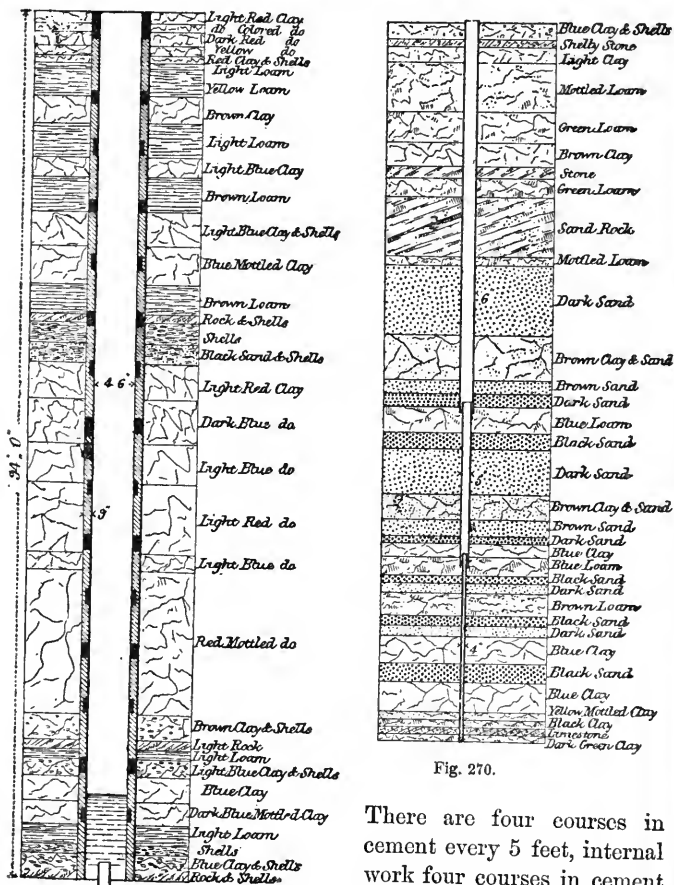 Light Red Clay
do Colored do
Dark Red do
Yellow do
Red Clay & Shells
Light Loam
Yellow Loam
Brown Clay
Light Loam
Light Blue Clay
Brown Loam
Light Blue Clay & Shells
Blue Mottled Clay
Brown Loam
Rock & Shells
Shells
Black Sand & Shells
4' 6"
Light Red Clay
Dark Blue do
Light Blue do
9"
Light Red do
Light Blue do
Red Mottled do
Brown Clay & Shells
Light Rock
Light Loam
Light Blue Clay & Shells
Blue Clay
Dark Blue Mottled Clay
Light Loam
Shells
Blue Clay & Shells
Rock & Shells
94' 0"
Blue Clay & Shells
Shelly Stone
Light Clay
Mottled Loam
Green Loam
Brown Clay
Stone
Green Loam
Sand Rock
Mottled Loam
6
Dark Sand
Brown Clay & Sand
Brown Sand
Dark Sand
Blue Loam
Black Sand
5
Dark Sand
Brown Clay & Sand
Brown Sand
Dark Sand
Blue Clay
Blue Loam
Black Sand
Dark Sand
Brown Loam
Black Sand
Dark Sand
4
Blue Clay
Black Sand
Blue Clay
Yellow Mottled Clay
Black Clay
Limestone
Dark Green Clay
Fig. 270.
There are four courses in
cement every 5 feet, internal
work four courses in cement